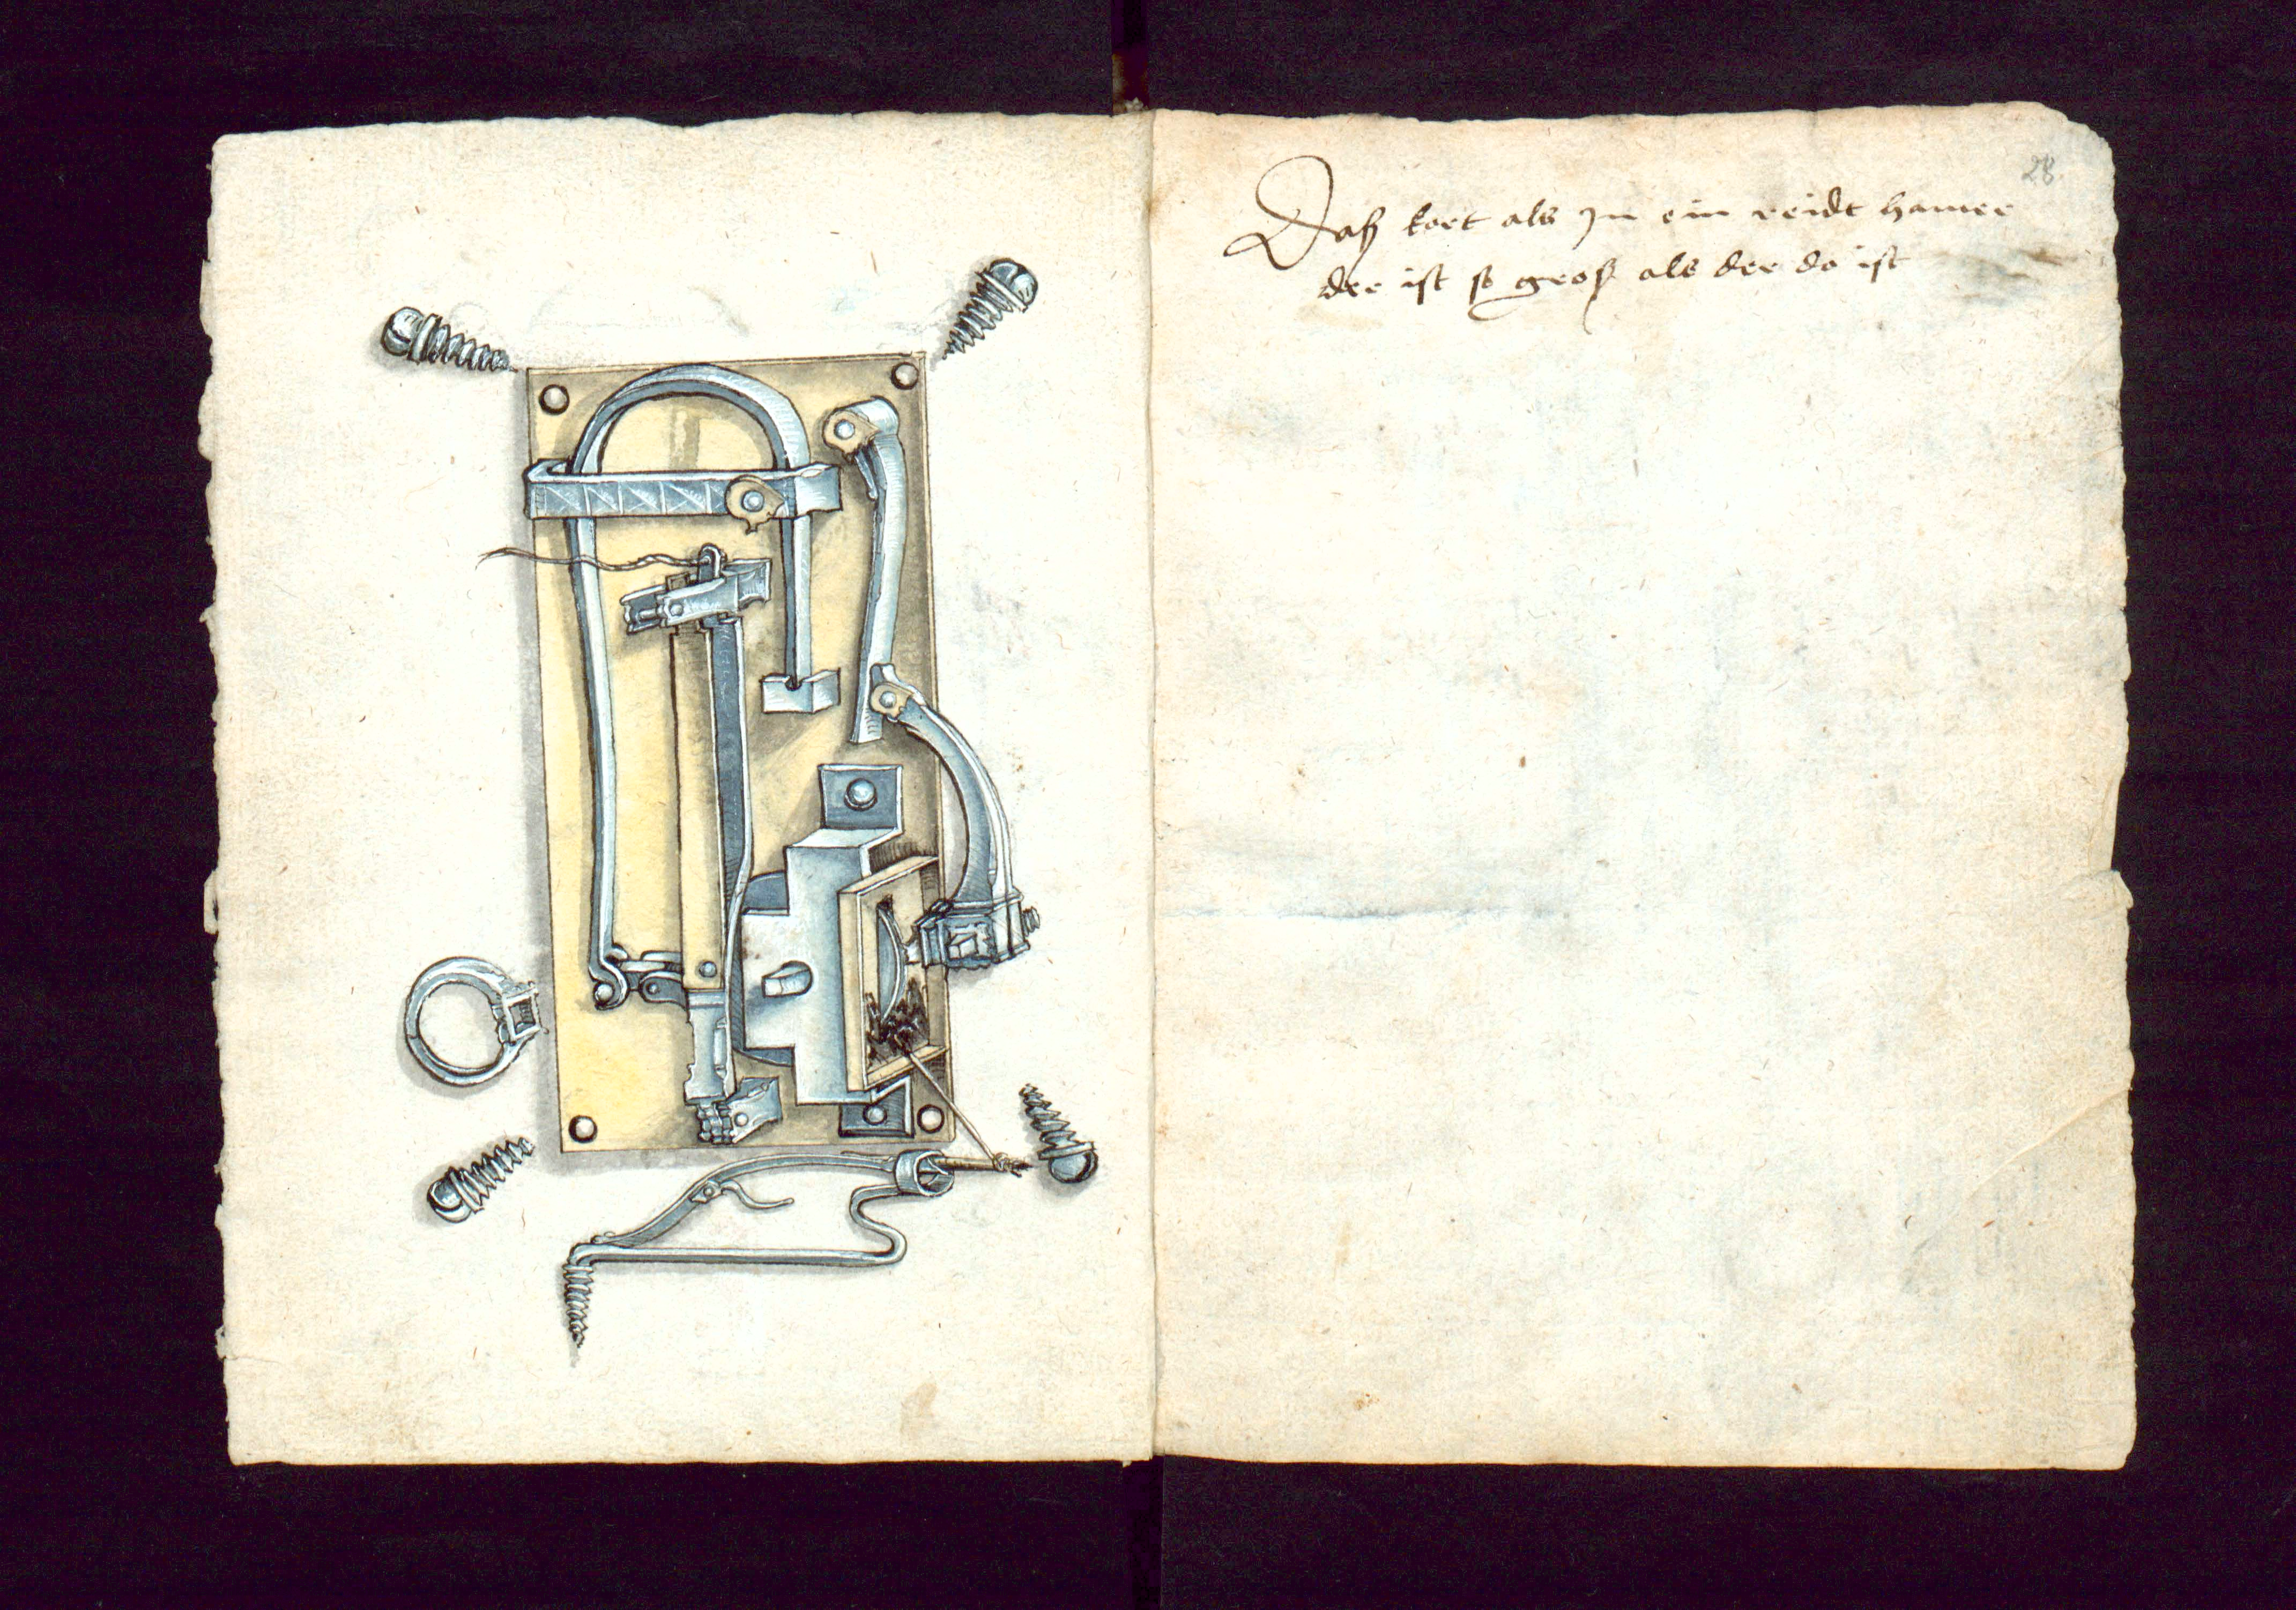 28.
Daß kort als In ein reidt hamer
der ist so groß als der do ist